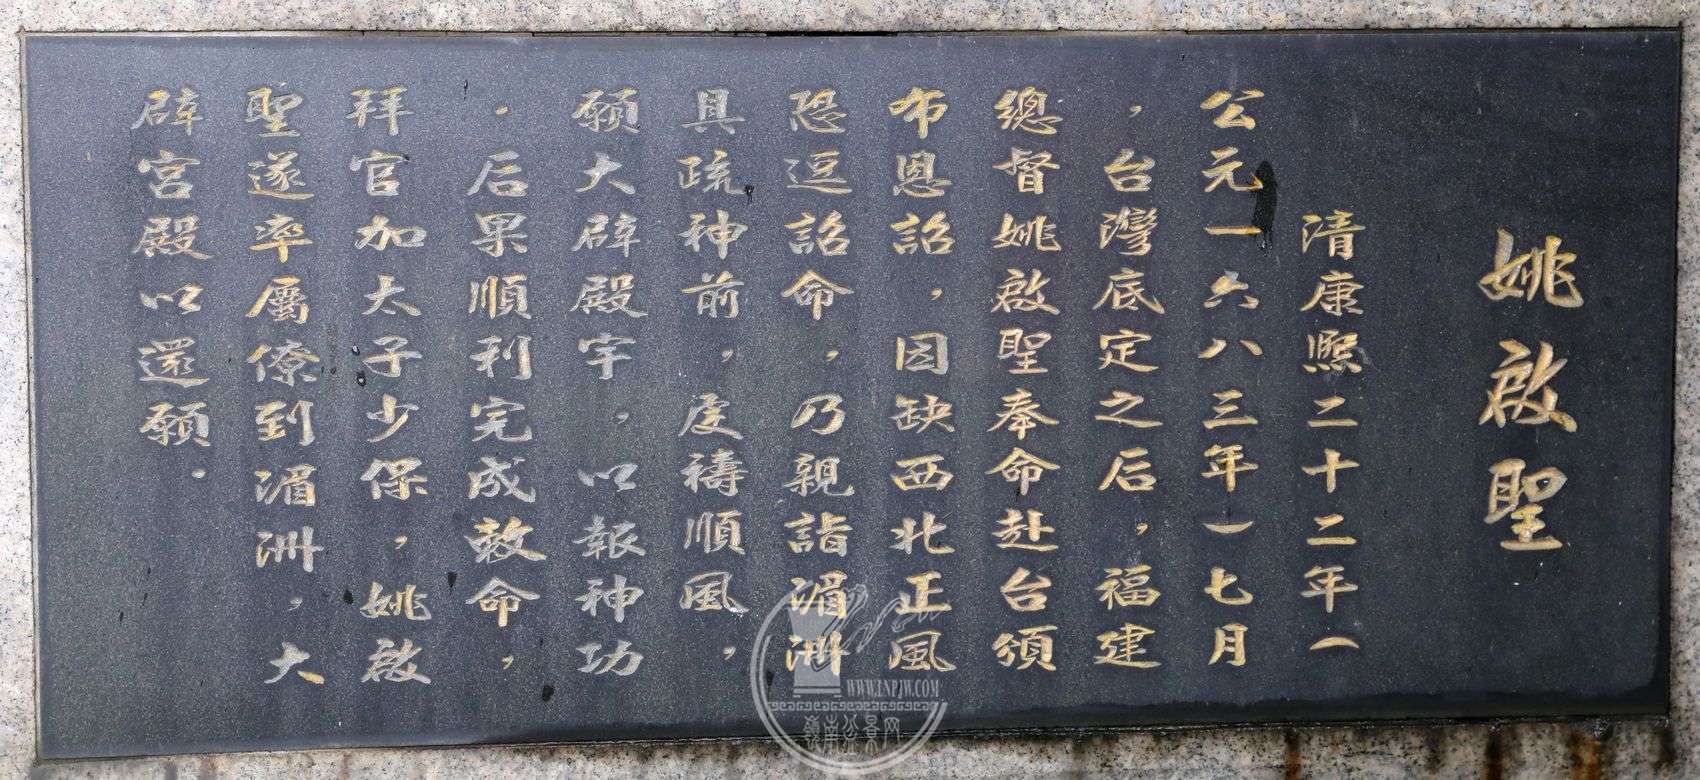 姚啟聖
清康熙二十二年︵
公元一六八三年︶七月
，台灣底定之后，福建
總督姚啟聖奉命赴台頒
布恩詔，因缺西北正風
恐逗詔命，乃親詣湄洲
具疏神前，虔禱順風，
願大辟殿宇，以報神功
．后果順利完成敕命，
拜官加太子少保，姚啟
聖遂率屬僚到湄洲，大
辟宮殿以還願．
WWW.LNPJW.COM
嶺南盆景网